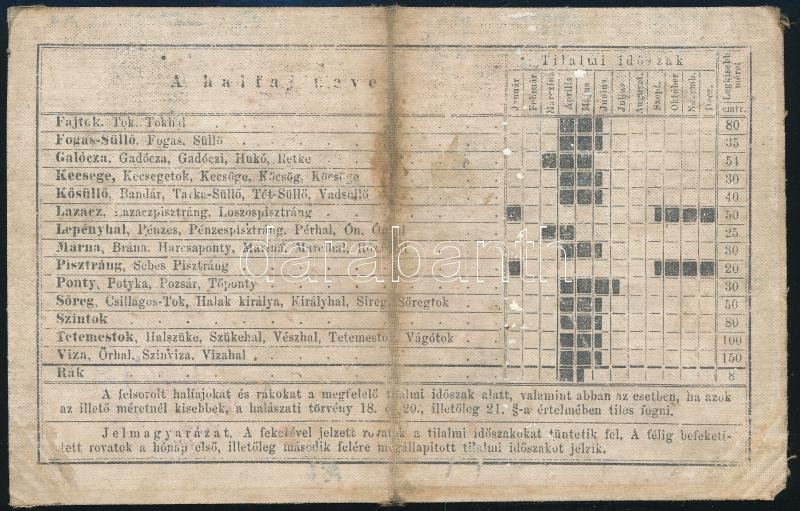 Tilalmi időszak
A halfaj neve
Január
Február
Március
Április
Május
Junius
Julius
Auguszt.
Szept.
Október
Novemb.
Decz.
Legkisebb méret
cmtr.
Fajtok, Tok, Tokhal 80
Fogas-Süllő, Fogas, Süllő 35
Galócza, Gadócza, Gadóczi, Hukó, Retke 54
Kecsege, Kecsegetok, Kecsőge, Köcsög, Köcsöge 30
Kősüllő, Bandár, Tarka-Süllő, Tót-Süllő, Vadsüllő 40
Lazacz, Lazaczpisztráng, Loszospisztráng 50
Lepényhal, Pénzes, Pénzespisztráng, Pérhal, Ón, 25
Márna, Brána, Harcsaponty, 30
Pisztráng, Sebes Pisztráng 20
Ponty, Potyka, Pozsár, Tőponty 30
Sőreg, Csillagos-Tok, Halak királya, Királyhal, Sireg, Sőregtok 50
Szintok 80
Tetemestok, Halszüke, Szükehal, Vészhal, Tetemestok, Vágótok 100
Viza, Őrhal, Szinviza, Vizahal 150
Rák 8
A felsorolt halfajokat és rákokat a megfelelő tilalmi időszak alatt, valamint abban az esetben, ha azok
az illető méretnél kisebbek, a halászati törvény 18. és 20., illetőleg 21. §-a értelmében tilos fogni.
Jelmagyarázat. A feketével jelzett rovatok a tilalmi időszakokat tüntetik fel. A félig befeketi-
tett rovatok a hónap első, illetőleg második felére megállapitott tilalmi időszakot jelzik.
darabanth